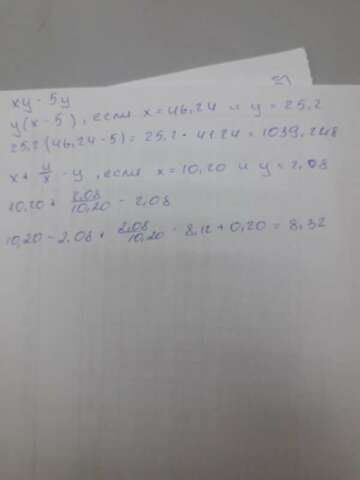 xy - 5y
y(x-5), если x = 46,24 и y = 25,2
25,2(46,24-5) = 25,2 · 41,24 = 1039,248
x + y/x - y, если x = 10,20 и y = 2,08
10,20 + 2,08/10,20 - 2,08
10,20 - 2,08 + 2,08/10,20 - 8,12 + 0,20 = 8,32